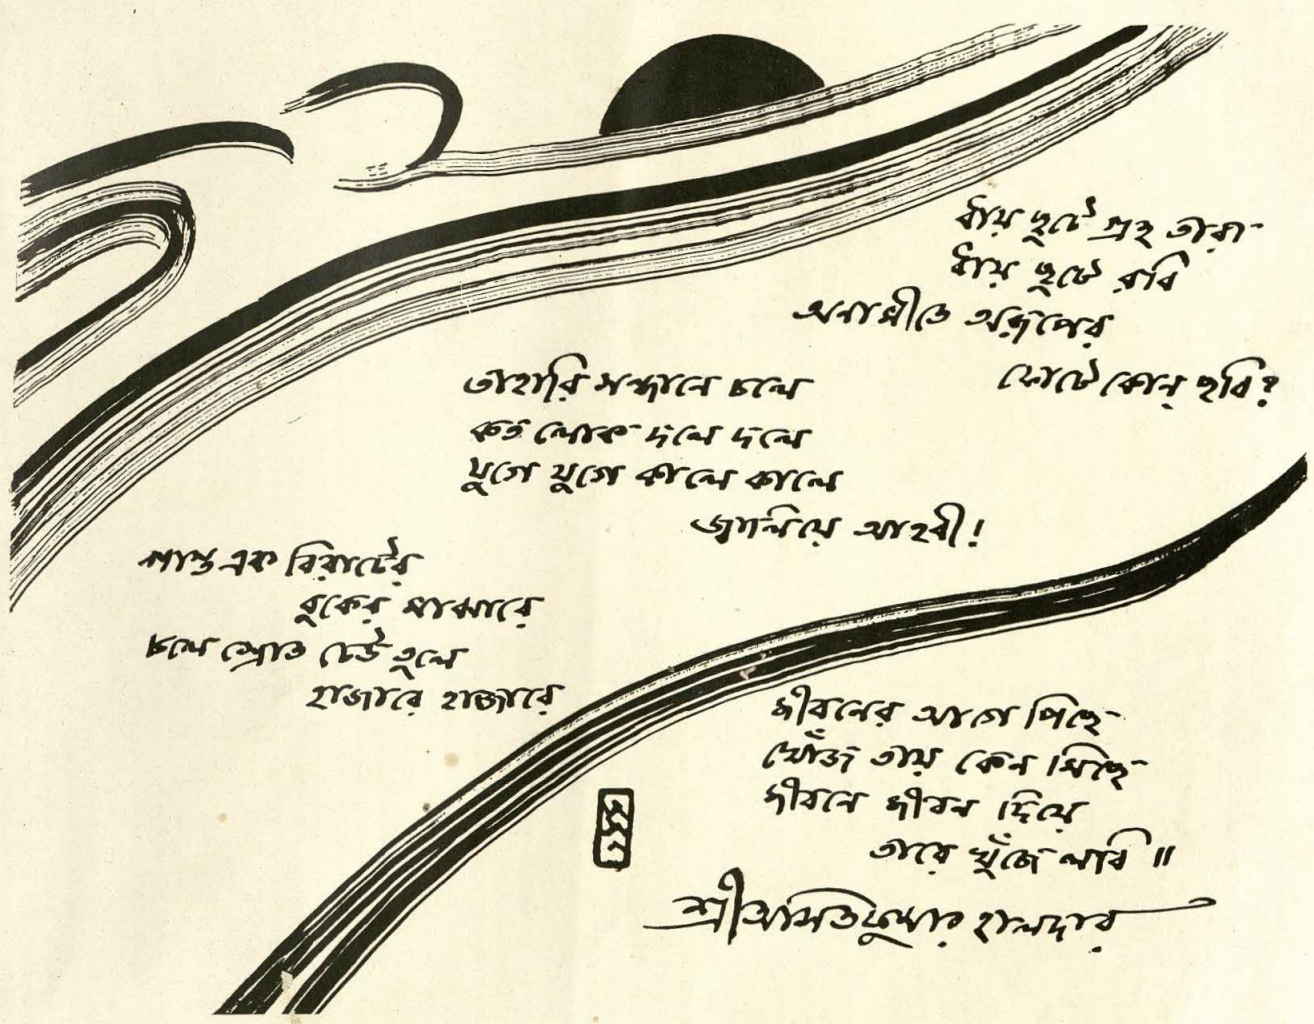 ধায় ছুটে গ্রহ তারা
ধায় ছুটে রবি
অনামীতে অরূপের
ফোটে কোন্ ছবি?
তাহারি সন্ধানে চলে
কত লোক দলে দলে
যুগে যুগে কালে কালে
জ্বালিয়ে আহবী!
শান্ত এক বিরাটের
বুকের মাঝারে
চলে স্রোত ঢেউ তুলে
হাজারে হাজারে
জীবনের আগে পিছে
খোঁজ তায় কেন মিছে
জীবনে জীবন দিয়ে
তারে খুঁজে লবি॥
শ্রীঅসিতকুমার হালদার